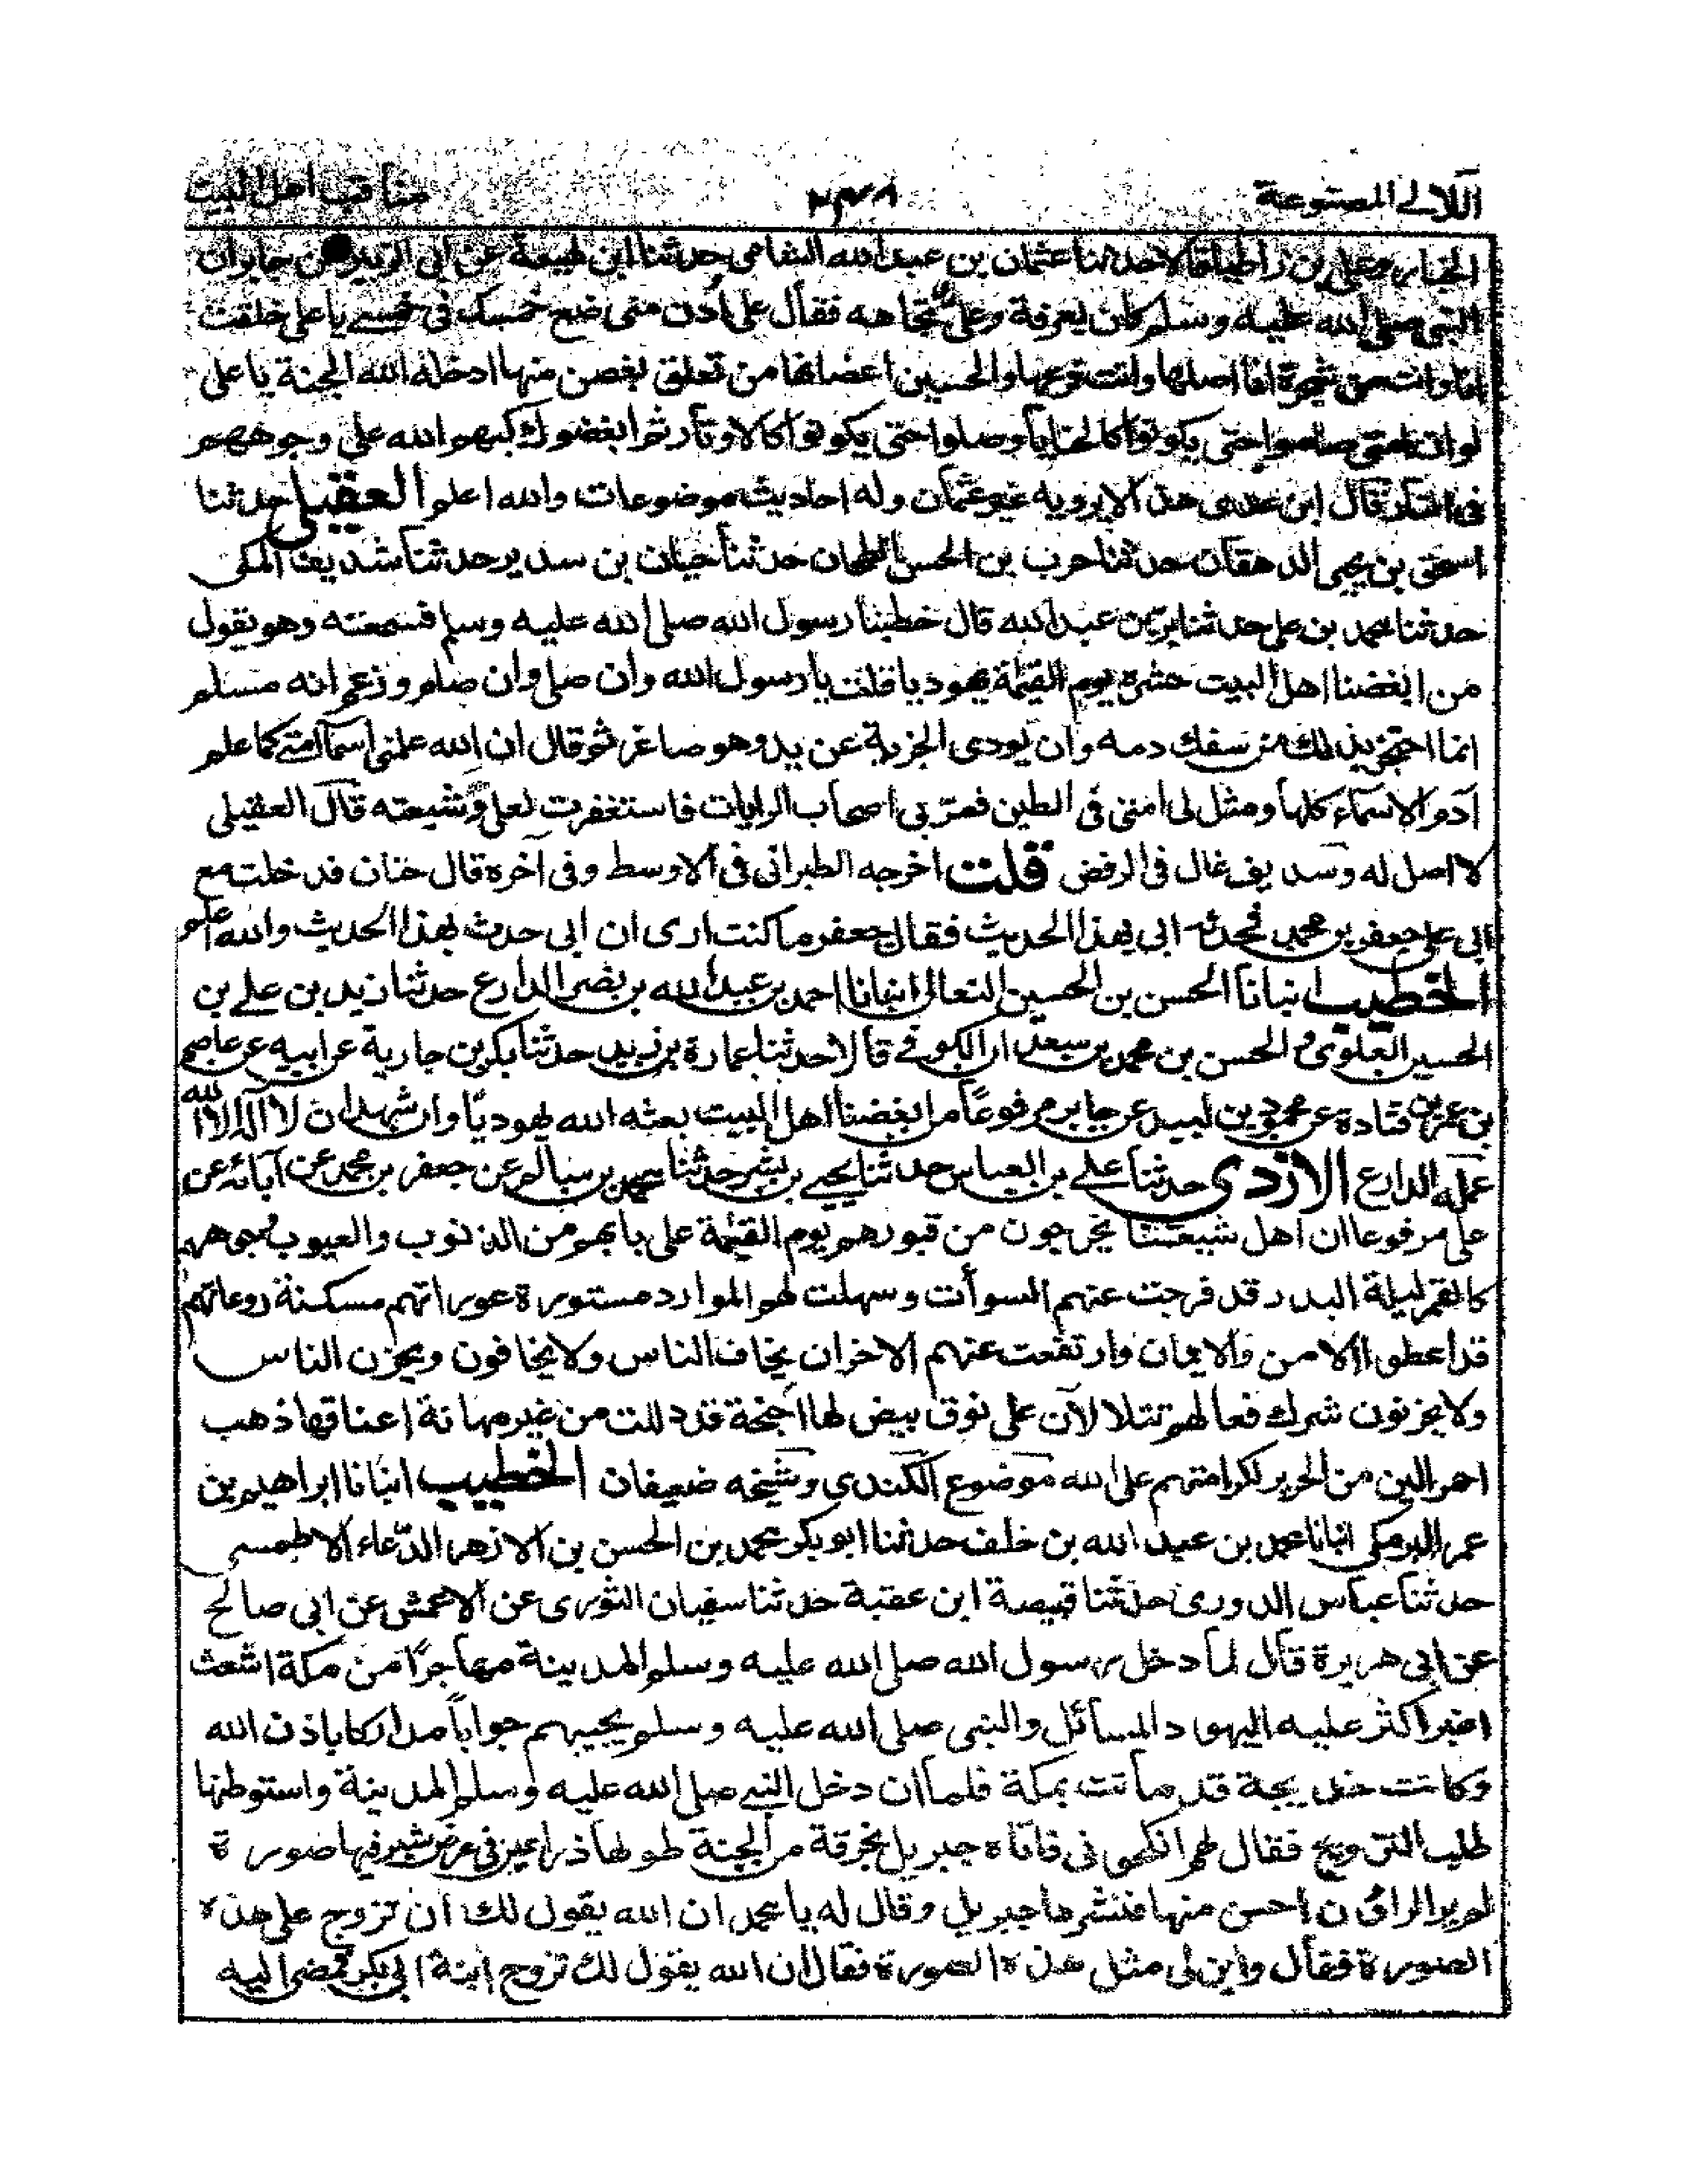 اللآلي المصنوعة ٢٣٨ مناقب اهل البيت
عثمان بن عبد الله الشامى حدثنا ابن لهيعة عن ابى الزبير عن جابر ان
النبى صلى الله عليه وسلم كان بعرفة وعلى تجاهه فقال على ادن منى ضع خمسك فى خمسى يا على خلقت
انا وانت من شجرة انا اصلها وانت فرعها والحسين اعضانها من تعلق بغصن منها ادخله الله الجنة يا على
لو ان امتى صاموا حتى يكونوا كالحنايا وصلوا حتى يكونوا كالاوتار ثم ابغضوك كبهم الله على وجوههم
فى النار قال ابن عدى هذا لا يرويه غير عثمان وله احاديث موضوعات والله اعلم العقيلى حدثنا
اسحق بن يحيى الدهقان حدثنا حرب بن الحسن الطحان حدثنا حيان بن سدير حدثنا شديف المكى
حدثنا محمد بن على حدثنا جابر بن عبد الله قال خطبنا رسول الله صلى الله عليه وسلم فسمعته وهو يقول
من ابغضنا اهل البيت حشره يوم القيمة يهوديا قلت يا رسول الله وان صلى وان صام وزعم انه مسلم
انما احتجز بذلك من سفك دمه وان يودى الجزية عن يد وهو صاغر ثم قال ان الله علمنى اسما امتى كما علم
آدم الاسماء كلها ومثل لى امتى فى الطين فمر بى اصحاب الرايات فاستغفرت لعلى وشيعته قال العقيلى
لا اصل له وسديف غال فى الرفض قلت اخرجه الطبرانى فى الاوسط وفى آخره قال حنان فدخلت مع
ابى على جعفر بن محمد فحدثه ابى بهذا الحديث فقال جعفر ما كنت ارى ان ابى حدث بهذا الحديث والله اعلم
الخطيب انبانا الحسن بن الحسين النعالى انبانا احمد بن عبد الله بن نصر الدارع حدثنا زيد بن على بن
الحسين العلوى و الحسن بن محمد بن سعدان الكوفى قالا حدثنا عمارة بن زيد حدثنا بكر بن جارية عن ابيه عن عاصم
بن عمر بن قتادة عن محمود بن لبيد عن جابر مرفوعًا من ابغضنا اهل البيت بعثه الله يهوديًا وان شهد ان لا اله الا الله
عمله الدارع الازدى حدثنا على بن العباس حدثنا يحيى بن بشر حدثنا محمد بن سالم عن جعفر بن محمد عن آبائه عن
على مرفوعا ان اهل شيعتنا يخرجون من قبورهم يوم القيمة على ما بهم من الذنوب والعيوب وجوههم
كالقمر ليلة البدر قد فرجت عنهم السوأت وسهلت لهم الموارد مستورة عوراتهم مسكنة روعاتهم
قد اعطوا الامن والايمان وارتفعت عنهم الاخران يخاف الناس ولا يخافون ويحزن الناس
ولا يحزنون شرك فعالهم تتلالان على نوق بيض لها اجنحة قد دللت من غير مهانة اعناقها ذهب
احمر الين من الحرير لكرامتهم على الله موضوع الكندى وشيخه ضعيفان الخطيب انبانا ابراهيم بن
عمر البرمكى انبانا محمد بن عبد الله بن خلف حدثنا ابو بكر محمد بن الحسن بن الازهر الدعاء الاطمسى
حدثنا عباس الدورى حدثنا قبيصة ابن عقبة حدثنا سفيان الثورى عن الاعمش عن ابى صالح
عن ابى هريرة قال لما دخل رسول الله صلى الله عليه وسلم المدينة مهاجرًا من مكة اشعث
اغبر اكثر عليه اليهود المسائل والنبى صلى الله عليه وسلم يجيبهم جوابًا مداركا باذن الله
وكانت خديجة قد ماتت بمكة فلما ان دخل النبى صلى الله عليه وسلم المدينة واستوطنها
طلب التزويج فقال لهم انكحونى فاتاه جبريل بخرقة من الجنة طولها ذراعين فى عرض شبر فيها صورة
لم ير الراؤن احسن منها فنشرها جبريل وقال له يا محمد ان الله يقول لك ان تزوج على هذه
الصورة فقال واين لى مثل هذه الصورة فقال ان الله يقول لك تزوج ابنة ابى بكر فمضى اليه